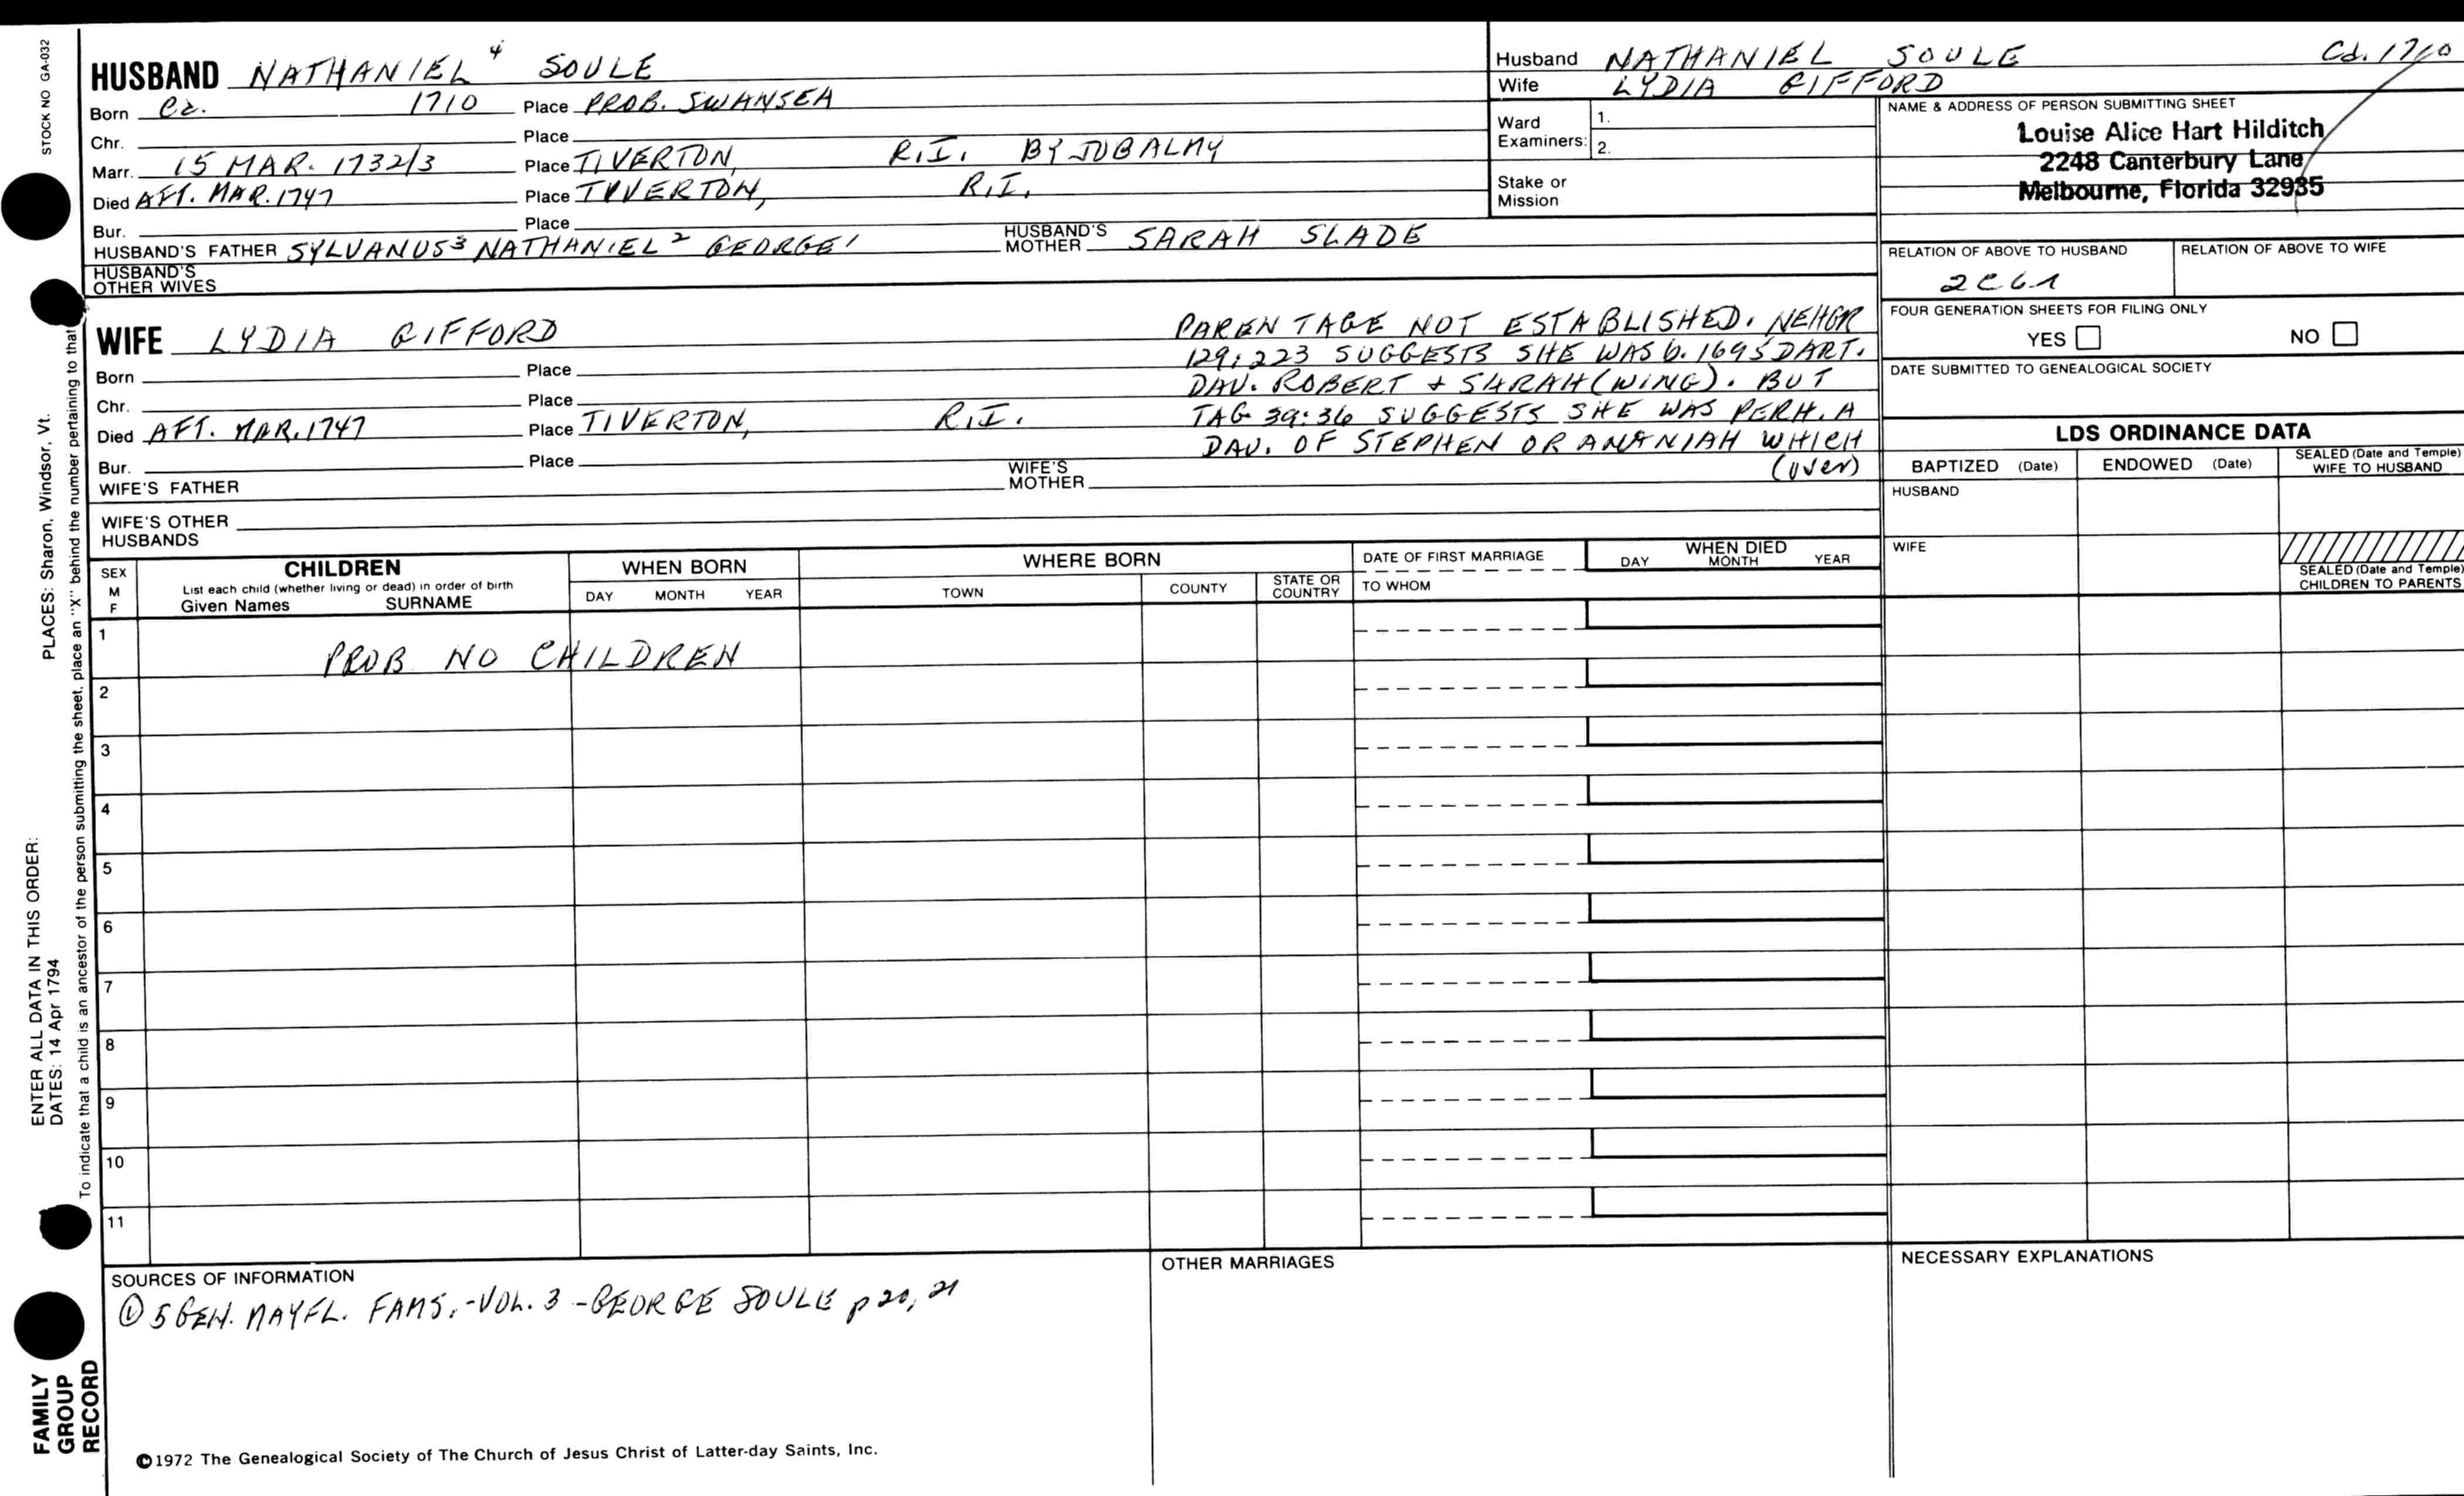 STOCK NO GA-032
HUSBAND NATHANIEL⁴ SOULE
Born Ca. 1710 Place PROB. SWANSEA
Chr. Place
Marr. 15 MAR. 1732/3 Place TIVERTON, R.I. BY JOB ALMY
Died AFT. MAR. 1747 Place TIVERTON, R.I.
Bur. Place
HUSBAND'S FATHER SYLVANUS³ NATHANIEL² GEORGE¹ HUSBAND'S MOTHER SARAH SLADE
HUSBAND'S OTHER WIVES
Husband NATHANIEL SOULE Ca. 1710
Wife LYDIA GIFFORD
Ward Examiners: 1.
2.
Stake or Mission
NAME & ADDRESS OF PERSON SUBMITTING SHEET
Louise Alice Hart Hilditch
2248 Canterbury Lane
Melbourne, Florida 32935
RELATION OF ABOVE TO HUSBAND RELATION OF ABOVE TO WIFE
2C6.1
FOUR GENERATION SHEETS FOR FILING ONLY
YES NO
DATE SUBMITTED TO GENEALOGICAL SOCIETY
WIFE LYDIA GIFFORD
Born Place
Chr. Place
Died AFT. MAR. 1747 Place TIVERTON, R.I.
Bur. Place
WIFE'S FATHER WIFE'S MOTHER
WIFE'S OTHER HUSBANDS
PARENTAGE NOT ESTABLISHED. NEHGR
129:223 SUGGESTS SHE WAS b. 1695 DART.
DAU. ROBERT + SARAH (WING). BUT
TAG 39:36 SUGGESTS SHE WAS PERH. A
DAU. OF STEPHEN OR ANANIAH WHICH
(over)
LDS ORDINANCE DATA
BAPTIZED (Date) ENDOWED (Date) SEALED (Date and Temple) WIFE TO HUSBAND
HUSBAND
WIFE
SEALED (Date and Temple) CHILDREN TO PARENTS
SEX M F
CHILDREN
List each child (whether living or dead) in order of birth
Given Names SURNAME
WHEN BORN
DAY MONTH YEAR
WHERE BORN
TOWN COUNTY STATE OR COUNTRY
DATE OF FIRST MARRIAGE
TO WHOM
WHEN DIED
DAY MONTH YEAR
1 PROB NO CHILDREN
2
3
4
5
6
7
8
9
10
11
SOURCES OF INFORMATION
① 5 GEN. MAYFL. FAMS. - VOL. 3 - GEORGE SOULE p 20, 21
OTHER MARRIAGES
NECESSARY EXPLANATIONS
©1972 The Genealogical Society of The Church of Jesus Christ of Latter-day Saints, Inc.
ENTER ALL DATA IN THIS ORDER:
DATES: 14 Apr 1794
PLACES: Sharon, Windsor, Vt.
To indicate that a child is an ancestor of the person submitting the sheet, place an "X" behind the number pertaining to that
FAMILY
GROUP
RECORD